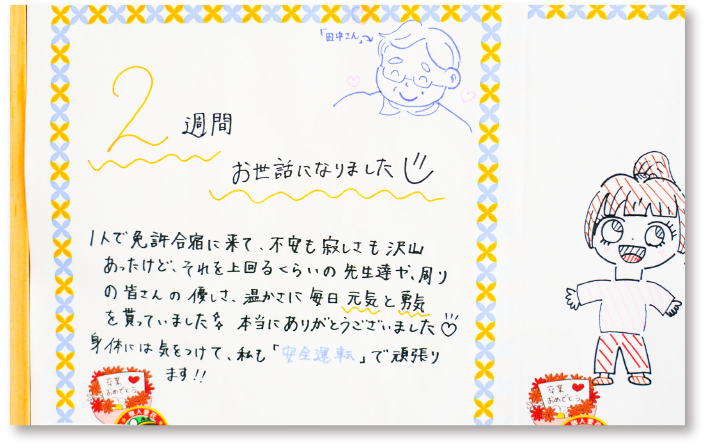 「田中さん」
2 週間
お世話になりました
1人で免許合宿に来て、不安も寂しさも沢山
あったけど、それを上回るくらいの先生達や、周り
の皆さんの優しさ、温かさに毎日元気と勇気
を貰っていました 本当にありがとうございました♡
身体には気をつけて、私も「安全運転」で頑張り
ます!!
卒業
おめでとう
卒業
おめでとう